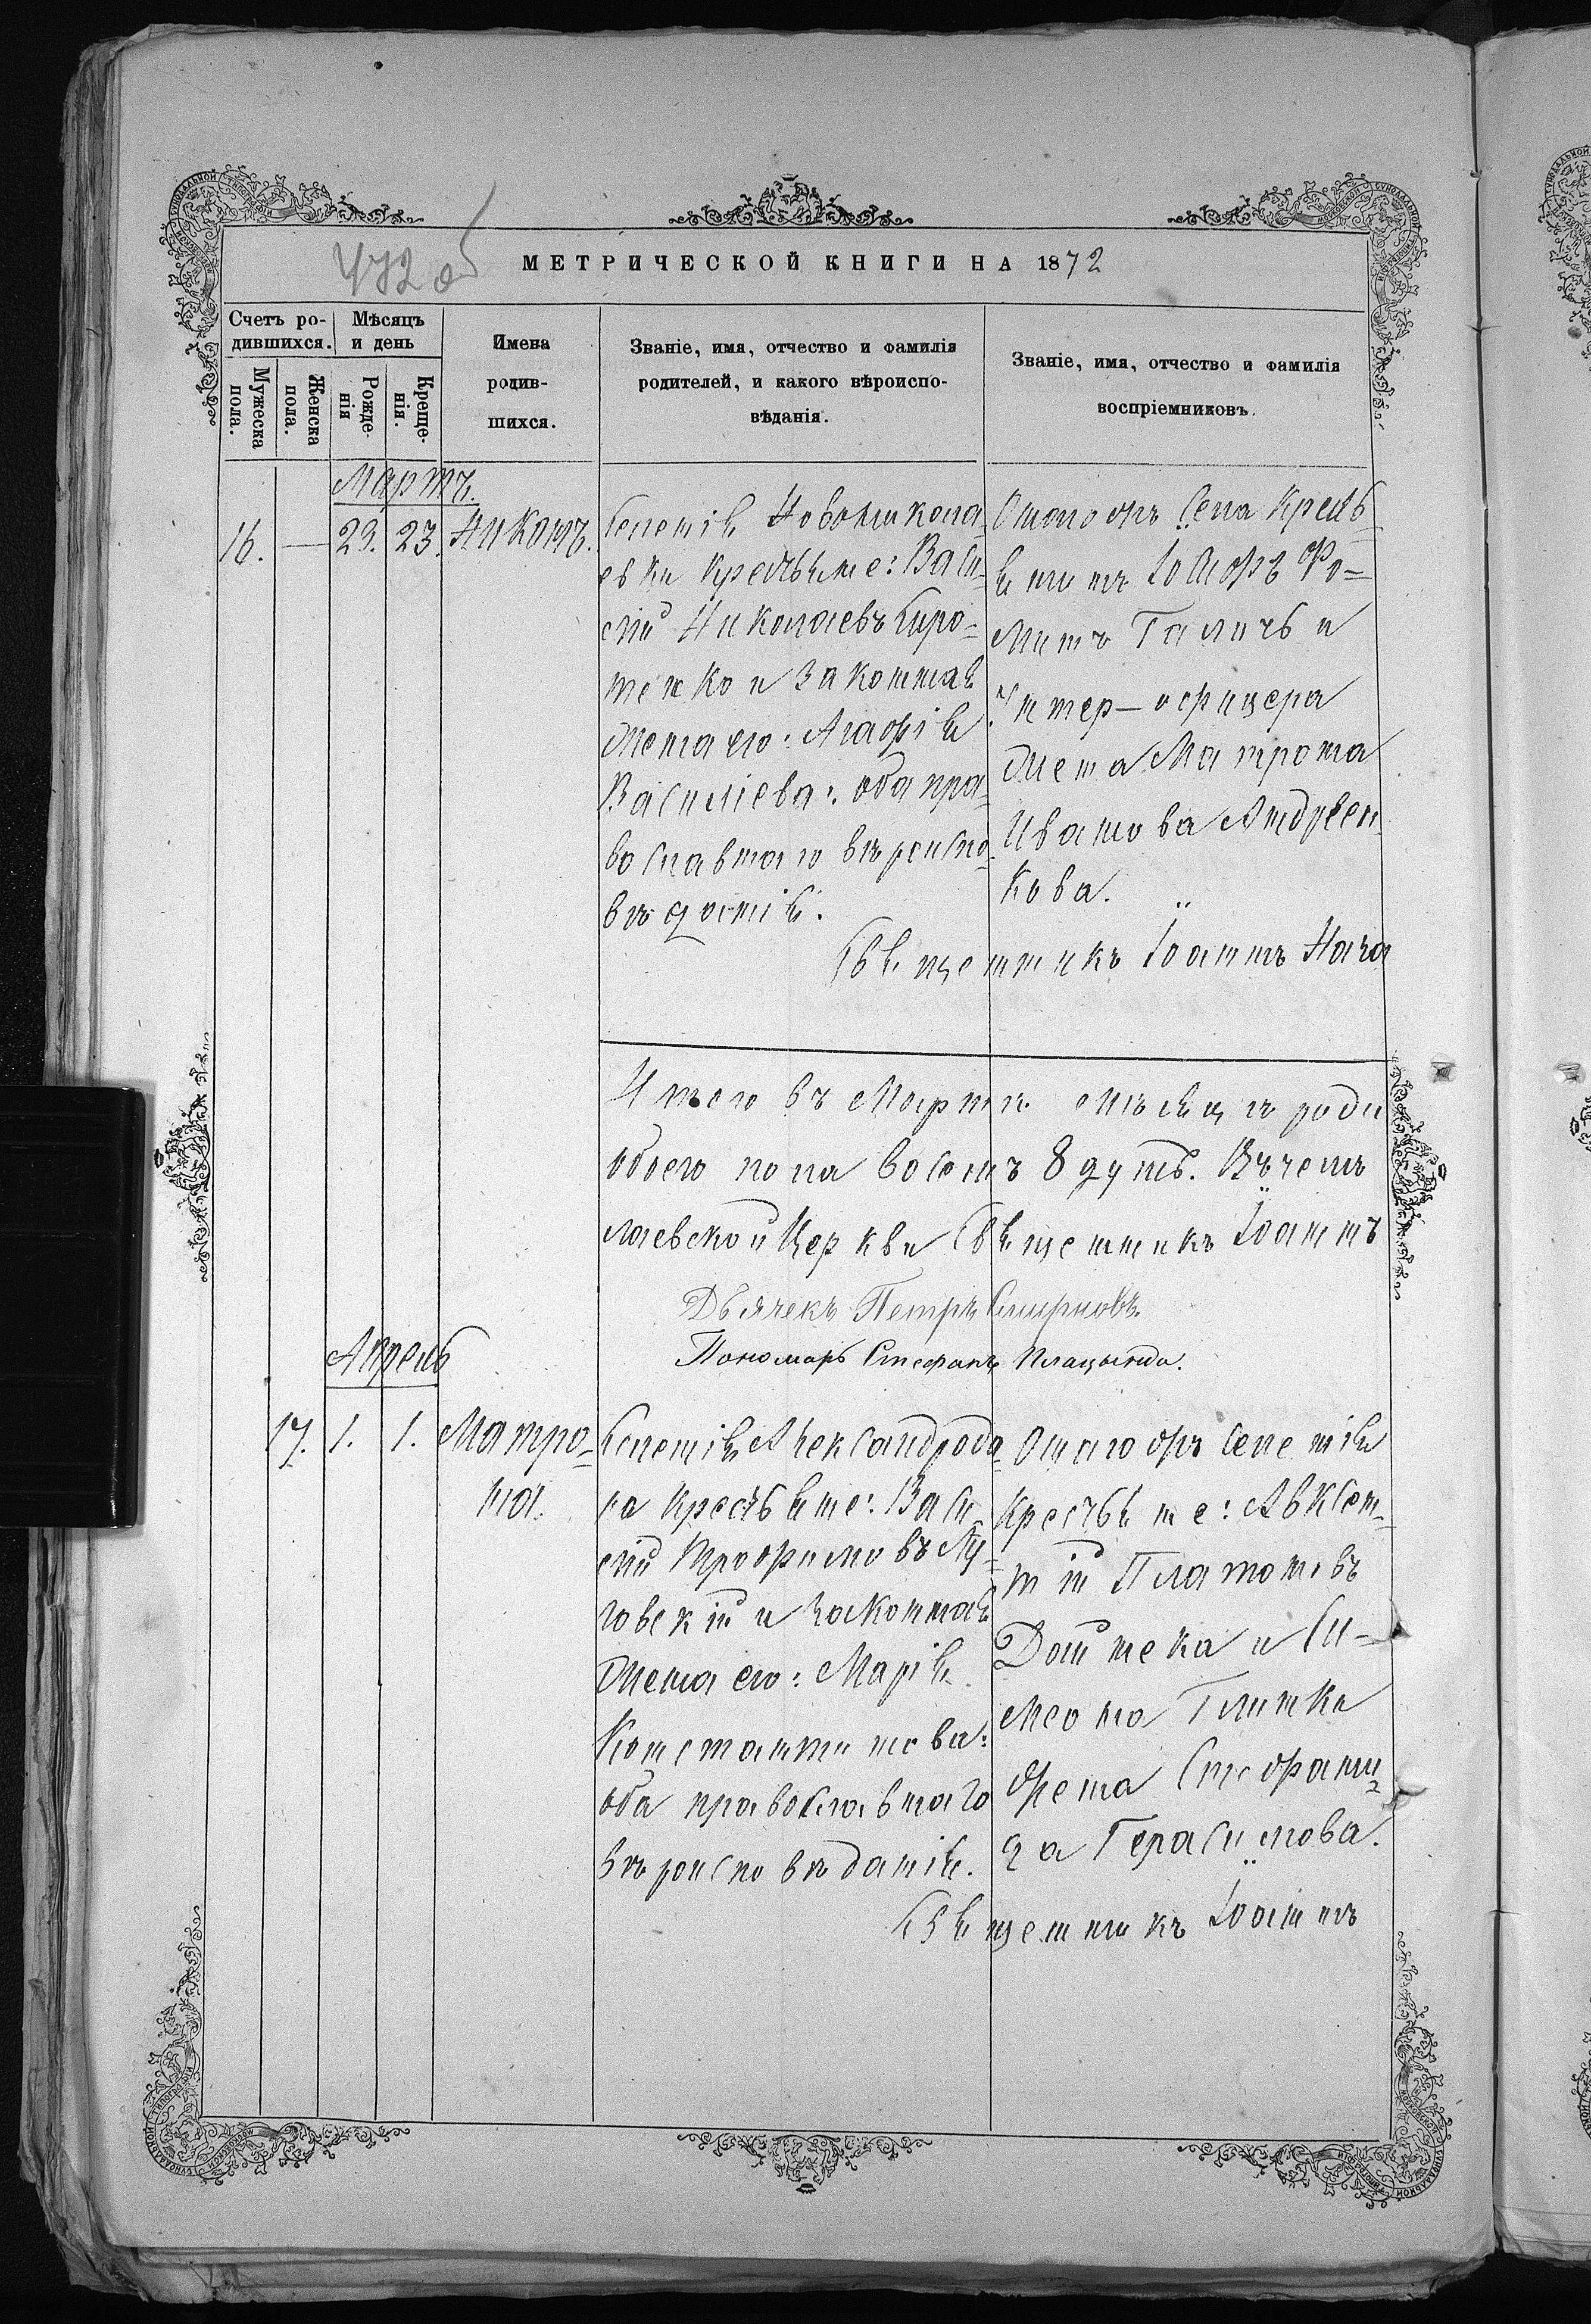 472 об
МЕТРИЧЕСКОЙ КНИГИ НА 1872
Счетъ ро-
дившихся.
Мѣсяцъ
и день
Мужеска
пола.
Женска
пола.
Рожде-
нія
Креще-
нія.
Имена
родив-
шихся.
Званіе, имя, отчество и фамилія
родителей, и какого вѣроиспо-
вѣданія.
Званіе, имя, отчество и фамилія
воспріемниковъ.
Мартъ.
16. — 23. 23. Никонъ.
Селенія Новониколаевки
евки крестьяне: Васи-
лій Николаевъ Сиро-
тенко и законная
жена его: Агафія
Васильева: оба пра-
вославнаго вѣроиспо-
вѣданія.
Онаго жъ Села Кресть-
янинъ
Галичъ и
Унтер-офицера
жена Матрона
Иванова Андреен-
кова.
Священникъ Іоаннъ Нага
Итого въ Мартѣ мѣсяцѣ роди
обоего пола восемъ 8 душъ. Въ чемъ
лаевской Церкви Священникъ Іоаннъ
Дьячекъ Петръ Смирновъ.
Пономарь Стефанъ Плацында.
Апрель
17. 1. 1. Матро-
на.
Селенія Александрода-
ра Крестьяне: Васи-
лій Трофимовъ Лу-
говскій и законная
жена его: Марія
Константинова:
оба православнаго
вѣроисповѣданія.
Онаго жъ Селенія
Крестьяне: Авксен-
тій Платоновъ
и Си-
меона Глинки
жена Стефани-
да Герасимова.
Священникъ Іоаннъ